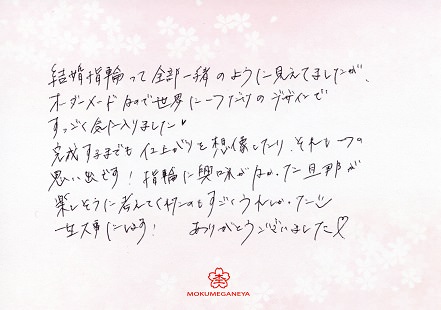 結婚指輪って全部一緒のように見えてましたが、
オーダーメードなので世界に一つだけのデザインで
すっごく気に入りました♥
完成するまでも仕上がりを想像したり、それも一つの
思い出です！指輪に興味がなかった旦那が
楽しそうに考えてくれたのもすごくうれしかった
一生大事にします！ ありがとうございました♡
MOKUMEGANEYA